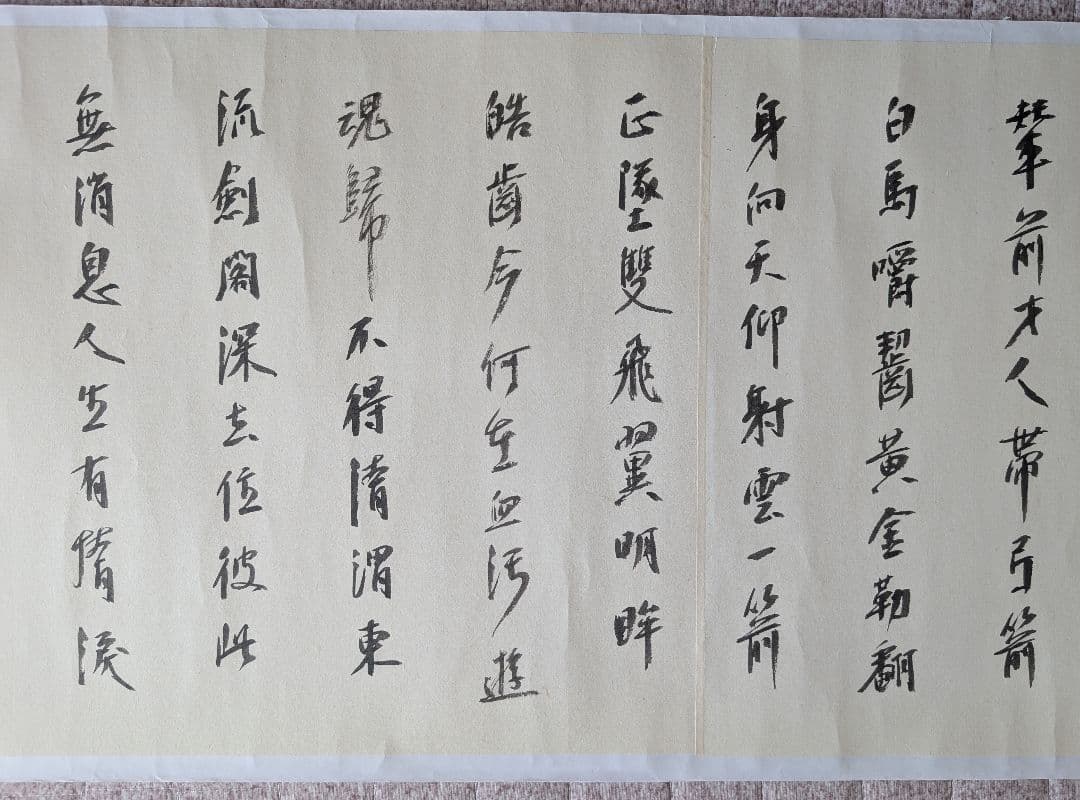 輦前才人帶弓箭
白馬嚼齧黃金勒翻
身向天仰射雲一箭
正墜雙飛翼明眸
皓齒今何在血污遊
魂歸不得清渭東
流劍閣深去住彼此
無消息人生有情淚